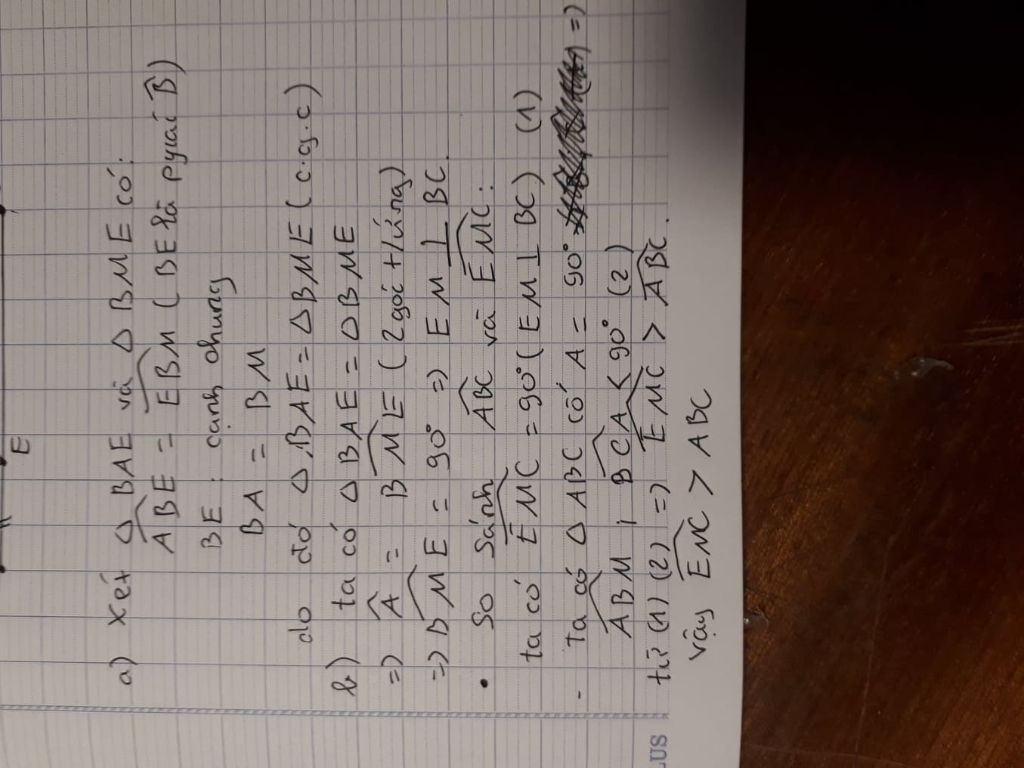 E
a) Xét △BAE và △BME có:
ABE = EBM (BE là pgiác B)
BE : cạnh chung
BA = BM
do đó △BAE = △BME (c.g.c)
b) ta có △BAE = △BME
=> A = BME (2góc tứng)
=> BME = 90° => EM ⊥ BC.
• So sánh ABC và EMC:
ta có EMC = 90° (EM ⊥ BC) (1)
- Ta có △ABC có A = 90° =>
ABM ; BCA < 90° (2)
từ (1) (2) => EMC > ABC.
vậy EMC > ABC
LUS